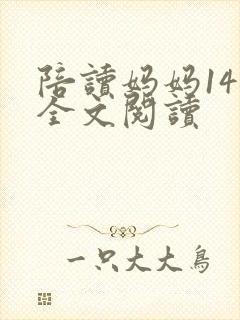 陪讀妈妈14
全文閱讀
一只大大鳥